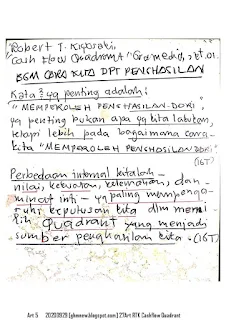 Robert T. Kiyosaki,
Cash Flow Quadrant" Gramedia, ct.01.
BGM CARA KITA DPT PENGHASILAN
Kata2 yg penting adalah:
"MEMPEROLEH PENGHASILAN DARI",
yg penting bukan apa yg kita lakukan,
tetapi lebih pada bagaimana cara
kita "MEMPEROLEH PENGHASILAN DARI".
(16T)
Perbedaan internal kitalah -
nilai, kekuatan, kelemahan, dan
minat inti - yg paling mempenga-
ruhi keputusan kita dlm memi-
lih Quadrant yang menjadi
sumber penghasilan kita. (16T)
Art 5 20200929 [gkmenow.blogspot.com] 27Art RTK Cashflow Quadrant